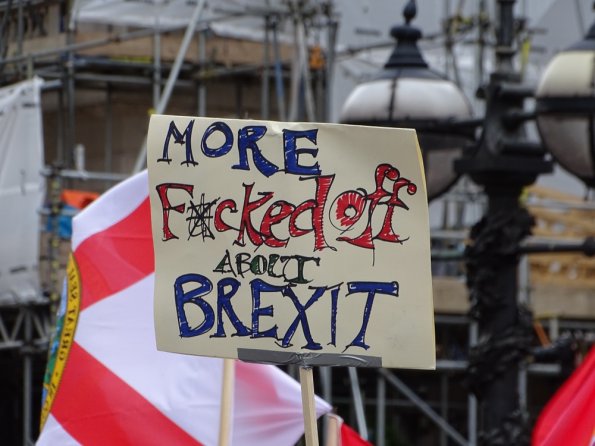 MORE
F*cked off
ABOUT
BREXIT